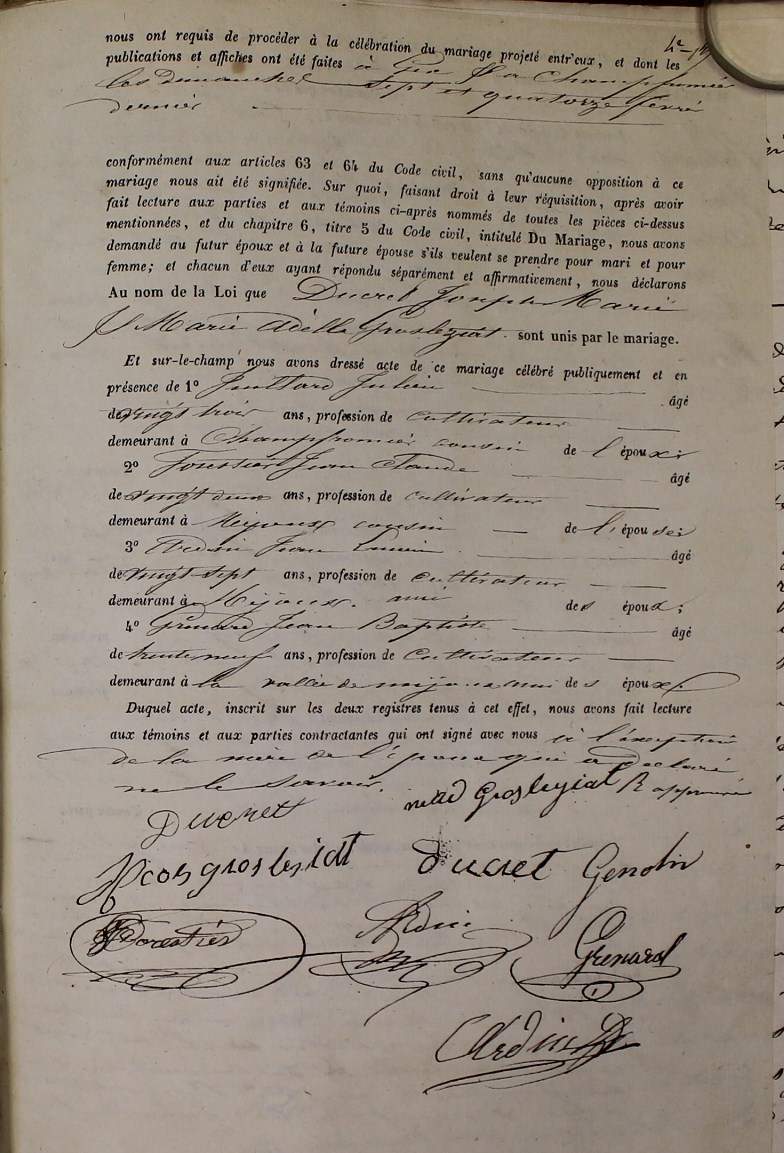 nous ont requis de procéder à la célébration du mariage projeté entr'eux, et dont les
publications et affiches ont été faites à Champfromier
les dimanches sept et quatorze février
dernier
conformément aux articles 63 et 64 du Code civil, sans qu'aucune opposition à ce
mariage nous ait été signifiée. Sur quoi, faisant droit à leur réquisition, après avoir
fait lecture aux parties et aux témoins ci-après nommés de toutes les pièces ci-dessus
mentionnées, et du chapitre 6, titre 5 du Code civil, intitulé Du Mariage, nous avons
demandé au futur époux et à la future épouse s'ils veulent se prendre pour mari et pour
femme; et chacun d'eux ayant répondu séparément et affirmativement, nous déclarons
Au nom de la Loi que Ducret Joseph Marie
Marie Adèlle Grosległiat sont unis par le mariage.
Et sur-le-champ nous avons dressé acte de ce mariage célébré publiquement et en
présence de 1º Julien âgé
de vingt trois ans, profession de cultivateur
demeurant à Champfromier cousin de l'époux;
2º Jean Claude âgé
de vingt deux ans, profession de cultivateur
demeurant à Mijoux cousin de l'épouse;
3º Jean âgé
de vingt-sept ans, profession de cultivateur
demeurant à Mijoux. ami des époux;
4º Grenard Jean Baptiste âgé
de trente neuf ans, profession de cultivateur
demeurant à la vallée de mijoux ami des époux.
Duquel acte, inscrit sur les deux registres tenus à cet effet, nous avons fait lecture
aux témoins et aux parties contractantes qui ont signé avec nous à l'exception
de la mère de l'époux qui a déclaré
ne le savoir.
Ducret Groslegiat approuvé
groslesiat ducret Genolin
Forestier Ardin Grenard
Ardin